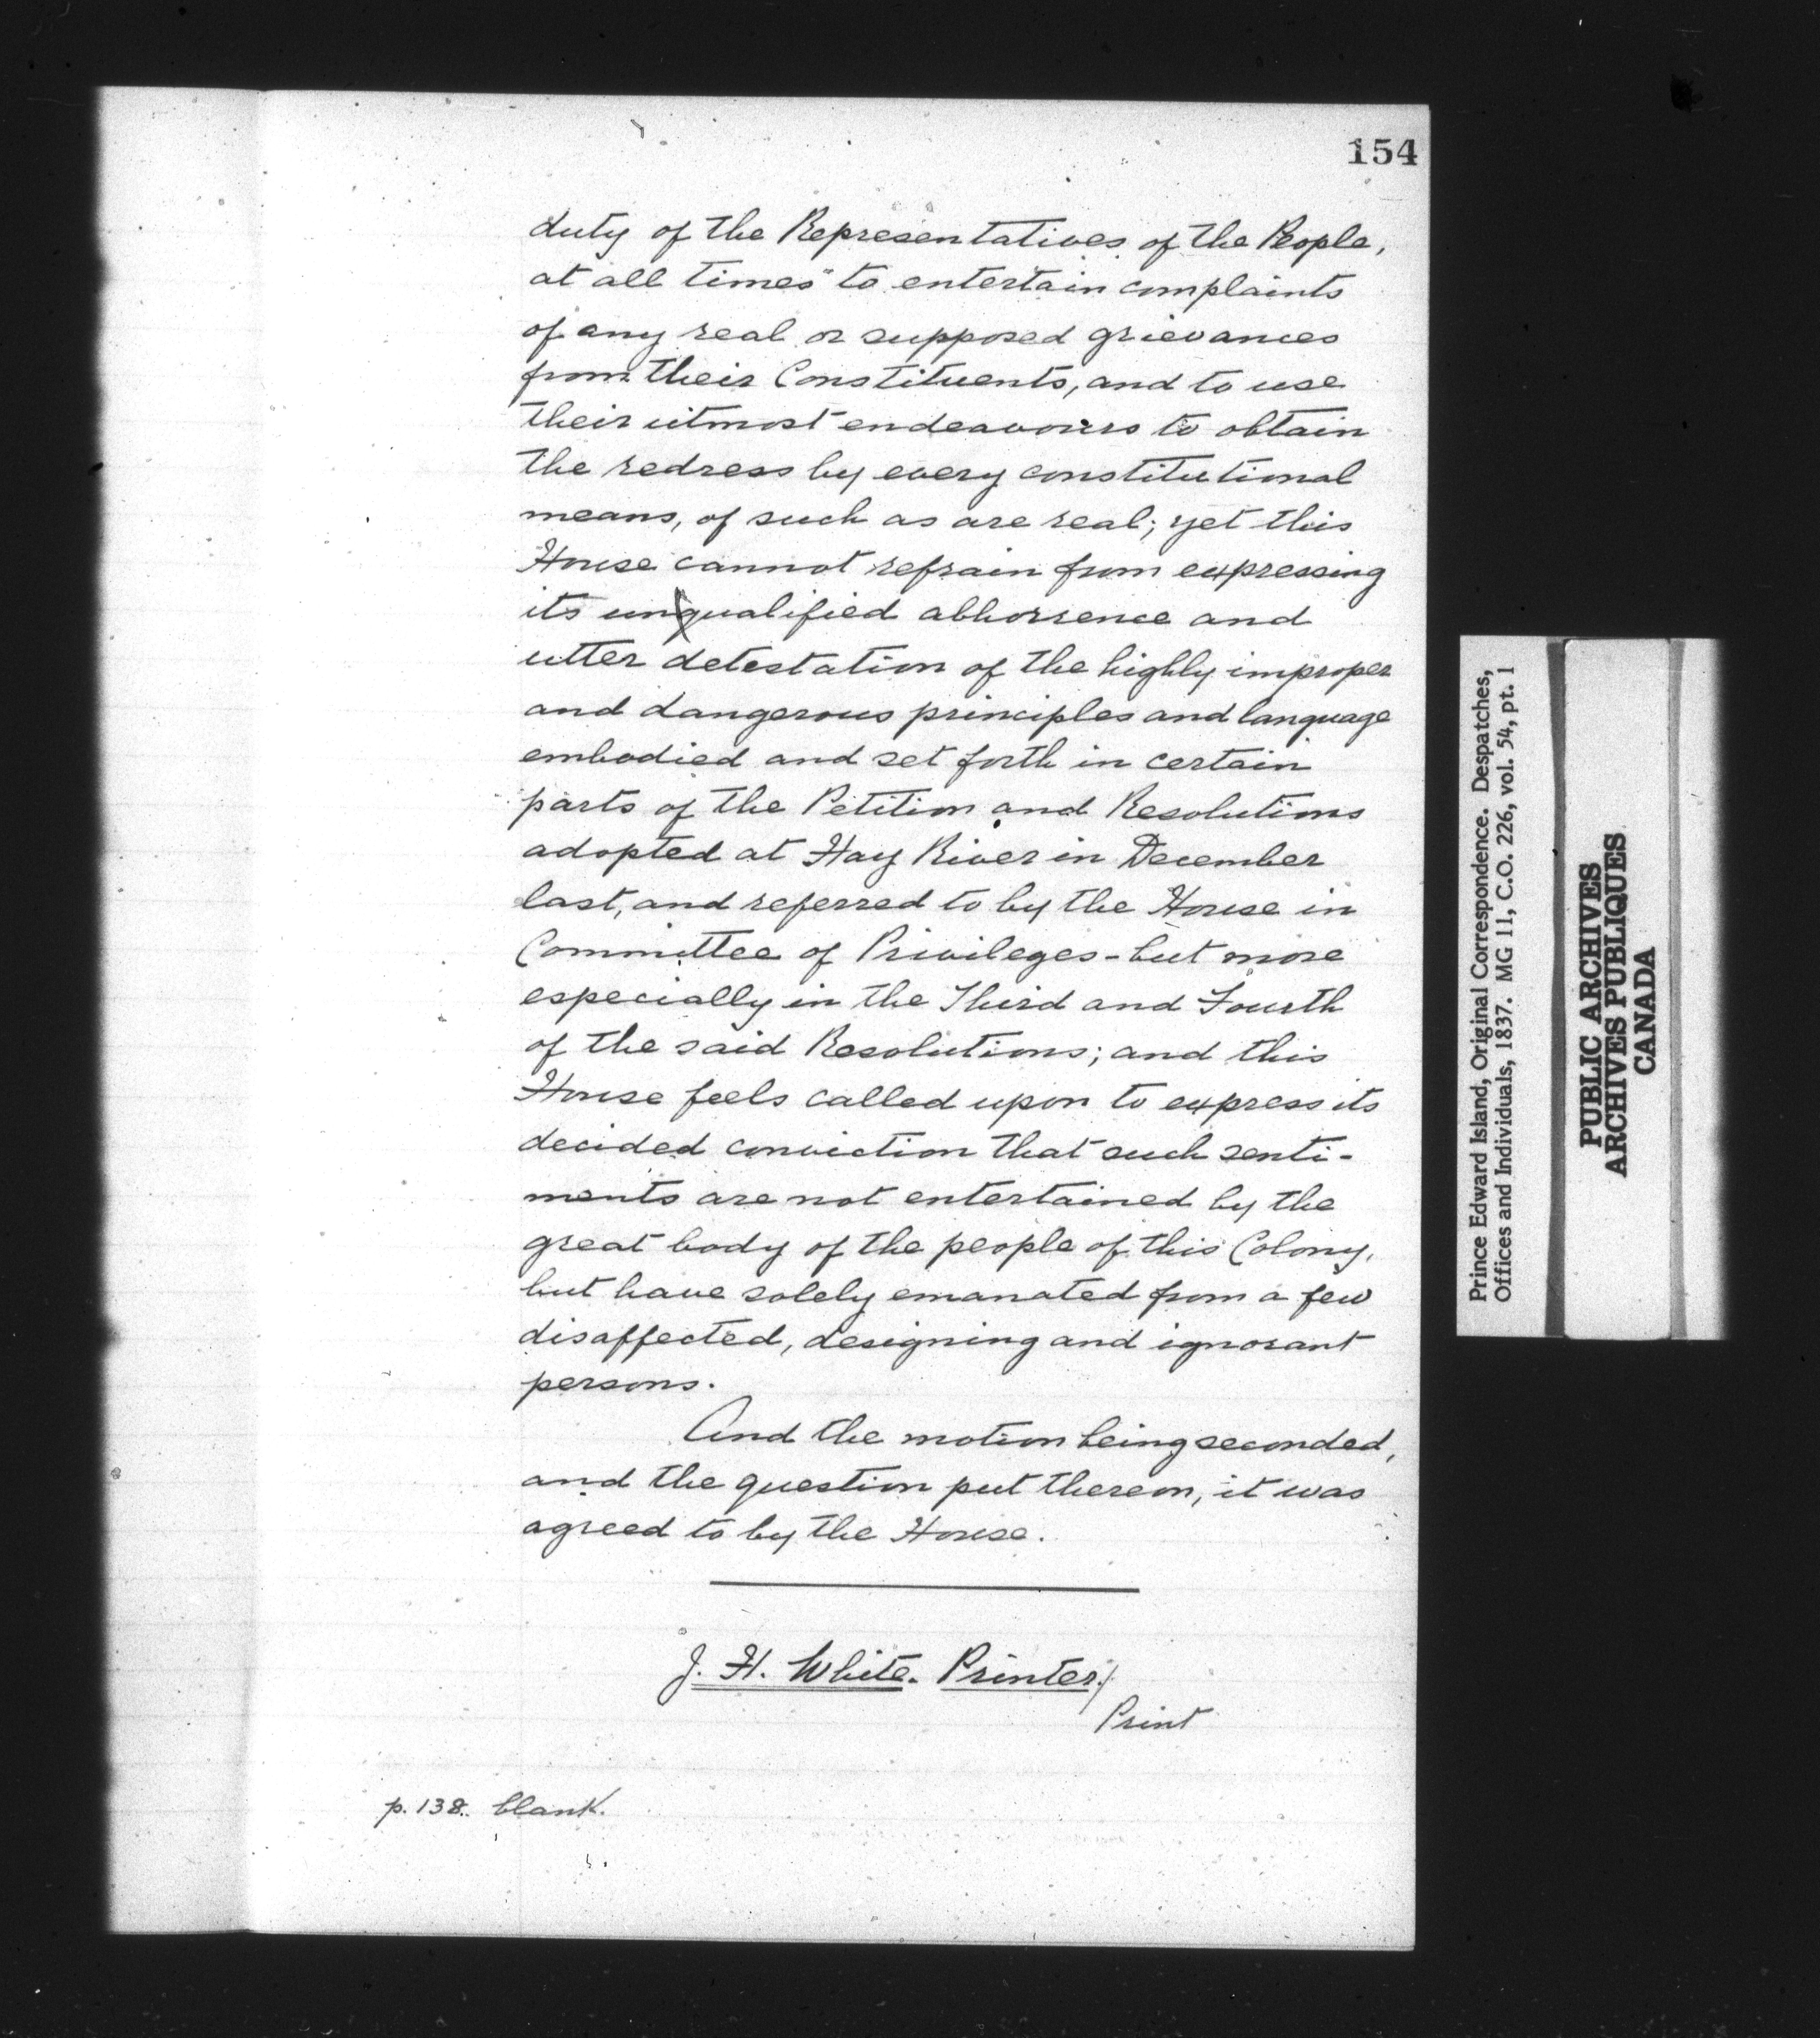 154
duty of the Representatives of the People,
at all times to entertain complaints
of any real or supposed grievances
from their Constituents, and to use
their utmost endeavours to obtain
the redress by every constitutional
means, of such as are real; yet this
House cannot refrain from expressing
its unqualified abhorrence and
utter detestation of the highly improper
and dangerous principles and language
embodied and set forth in certain
parts of the Petition and Resolutions
adopted at Hay River in December
last, and referred to by the House in
Committee of Privileges - but more
especially in the Third and Fourth
of the said Resolutions; and this
House feels called upon to express its
decided conviction that such senti-
ments are not entertained by the
great body of the people of this Colony,
but have solely emanated from a few
disaffected, designing and ignorant
persons.
And the motion being seconded,
and the question put thereon, it was
agreed to by the House.
J. H. White. Printer./
Print
p. 138. blank.
Prince Edward Island, Original Correspondence. Despatches,
Offices and Individuals, 1837. MG 11, C.O. 226, vol. 54, pt. 1
PUBLIC ARCHIVES
ARCHIVES PUBLIQUES
CANADA